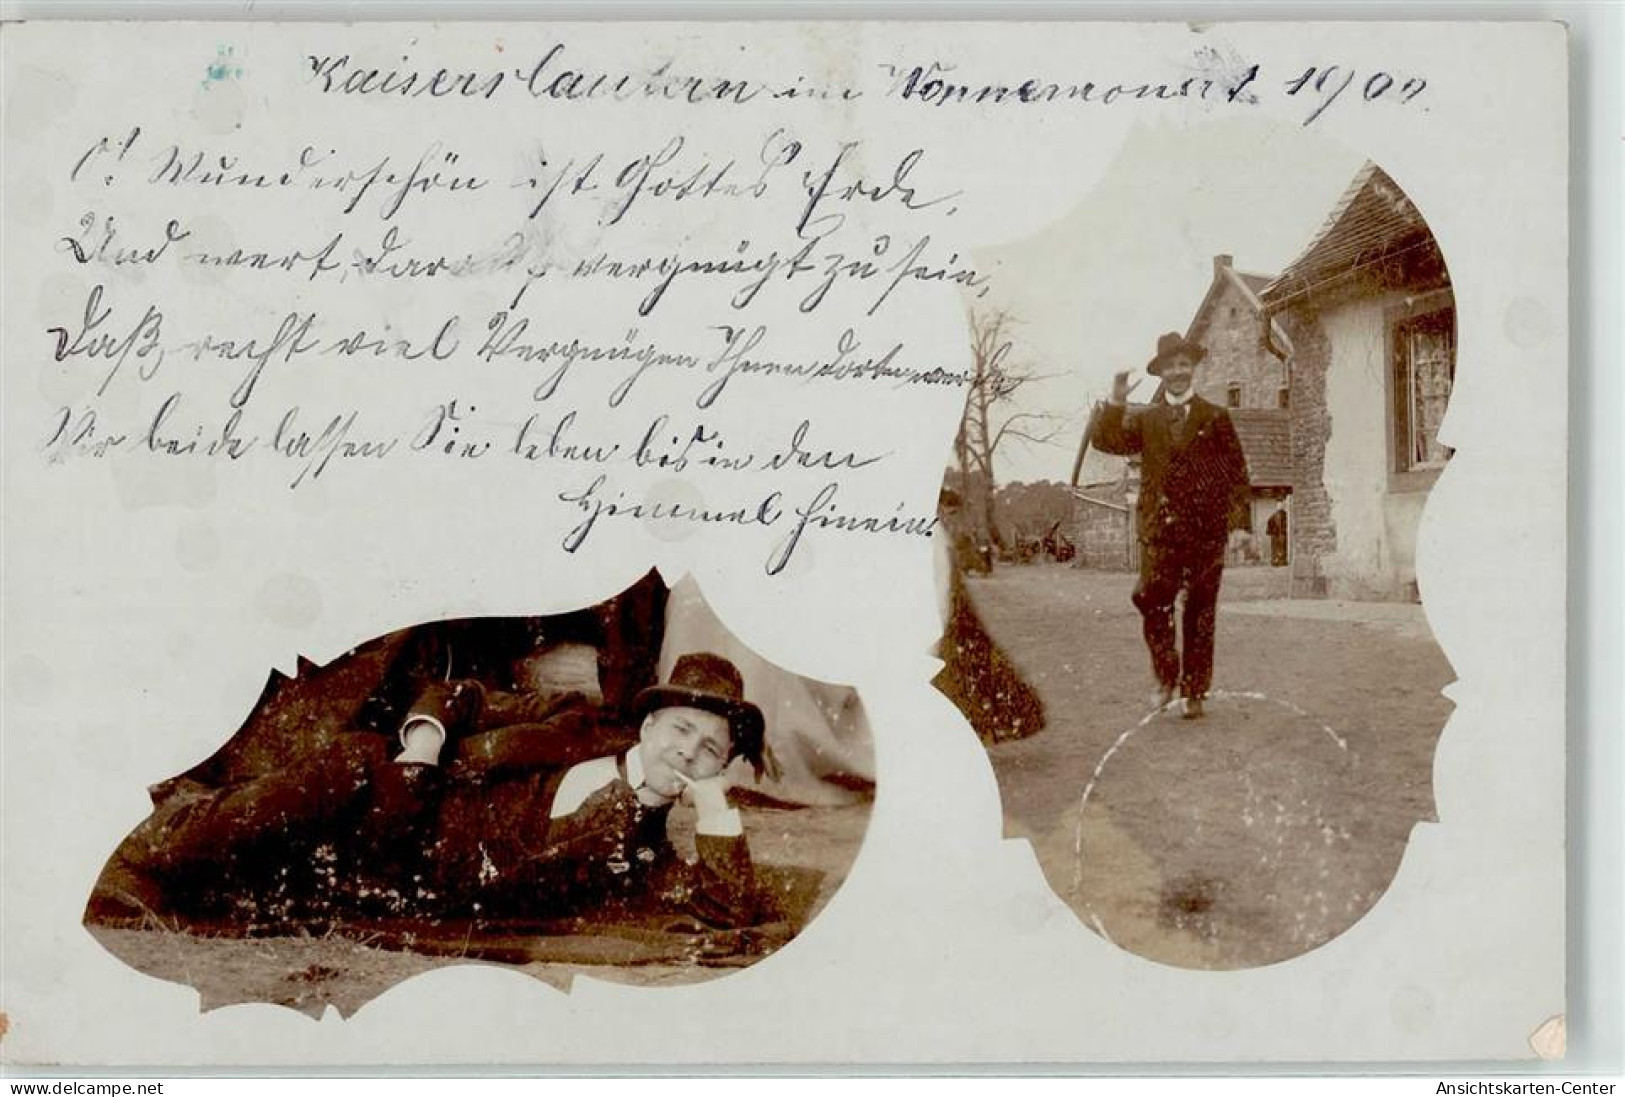 Kaiserslautern im Wonnemonat 1900.
O! Wunderschön ist Gottes Erde,
Und wert, darauf vergnügt zu sein,
Daß, recht viel Vergnügen Ihnen dorten werde
Wir beide lassen Sie leben bis in den
Himmel hinein!
Ansichtskarten-Center